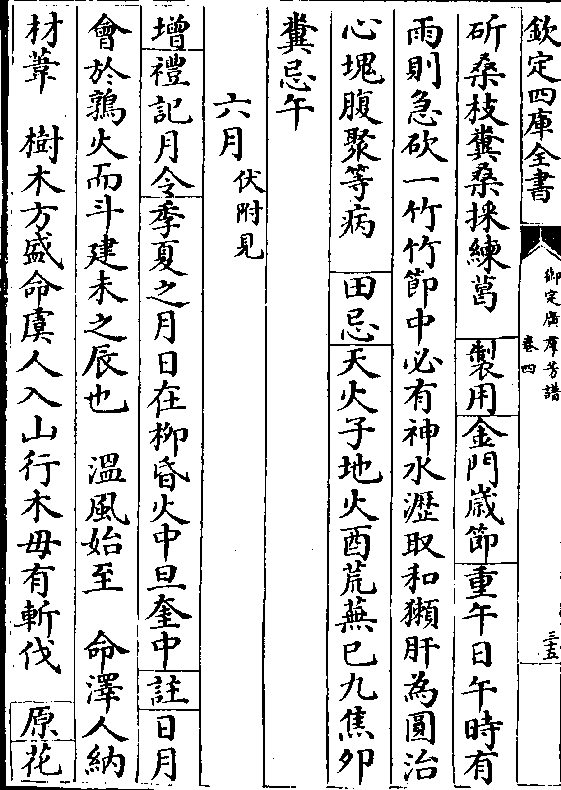 欽定四庫全書
御定廣羣芳譜
卷四
三五
斫桑枝糞桑採練葛　製用金門歲節重午日午時有
雨則急砍一竹竹節中必有神水瀝取和獺肝為圓治
心塊腹聚等病　田忌天火子地火酉荒蕪巳九焦卯
糞忌午
六月伏附見
增禮記月令季夏之月日在栁昏火中旦奎中註日月
會於鶉火而斗建未之辰也　溫風始至　命澤人納
材葦　樹木方盛命虞人入山行木毋有斬伐　原花